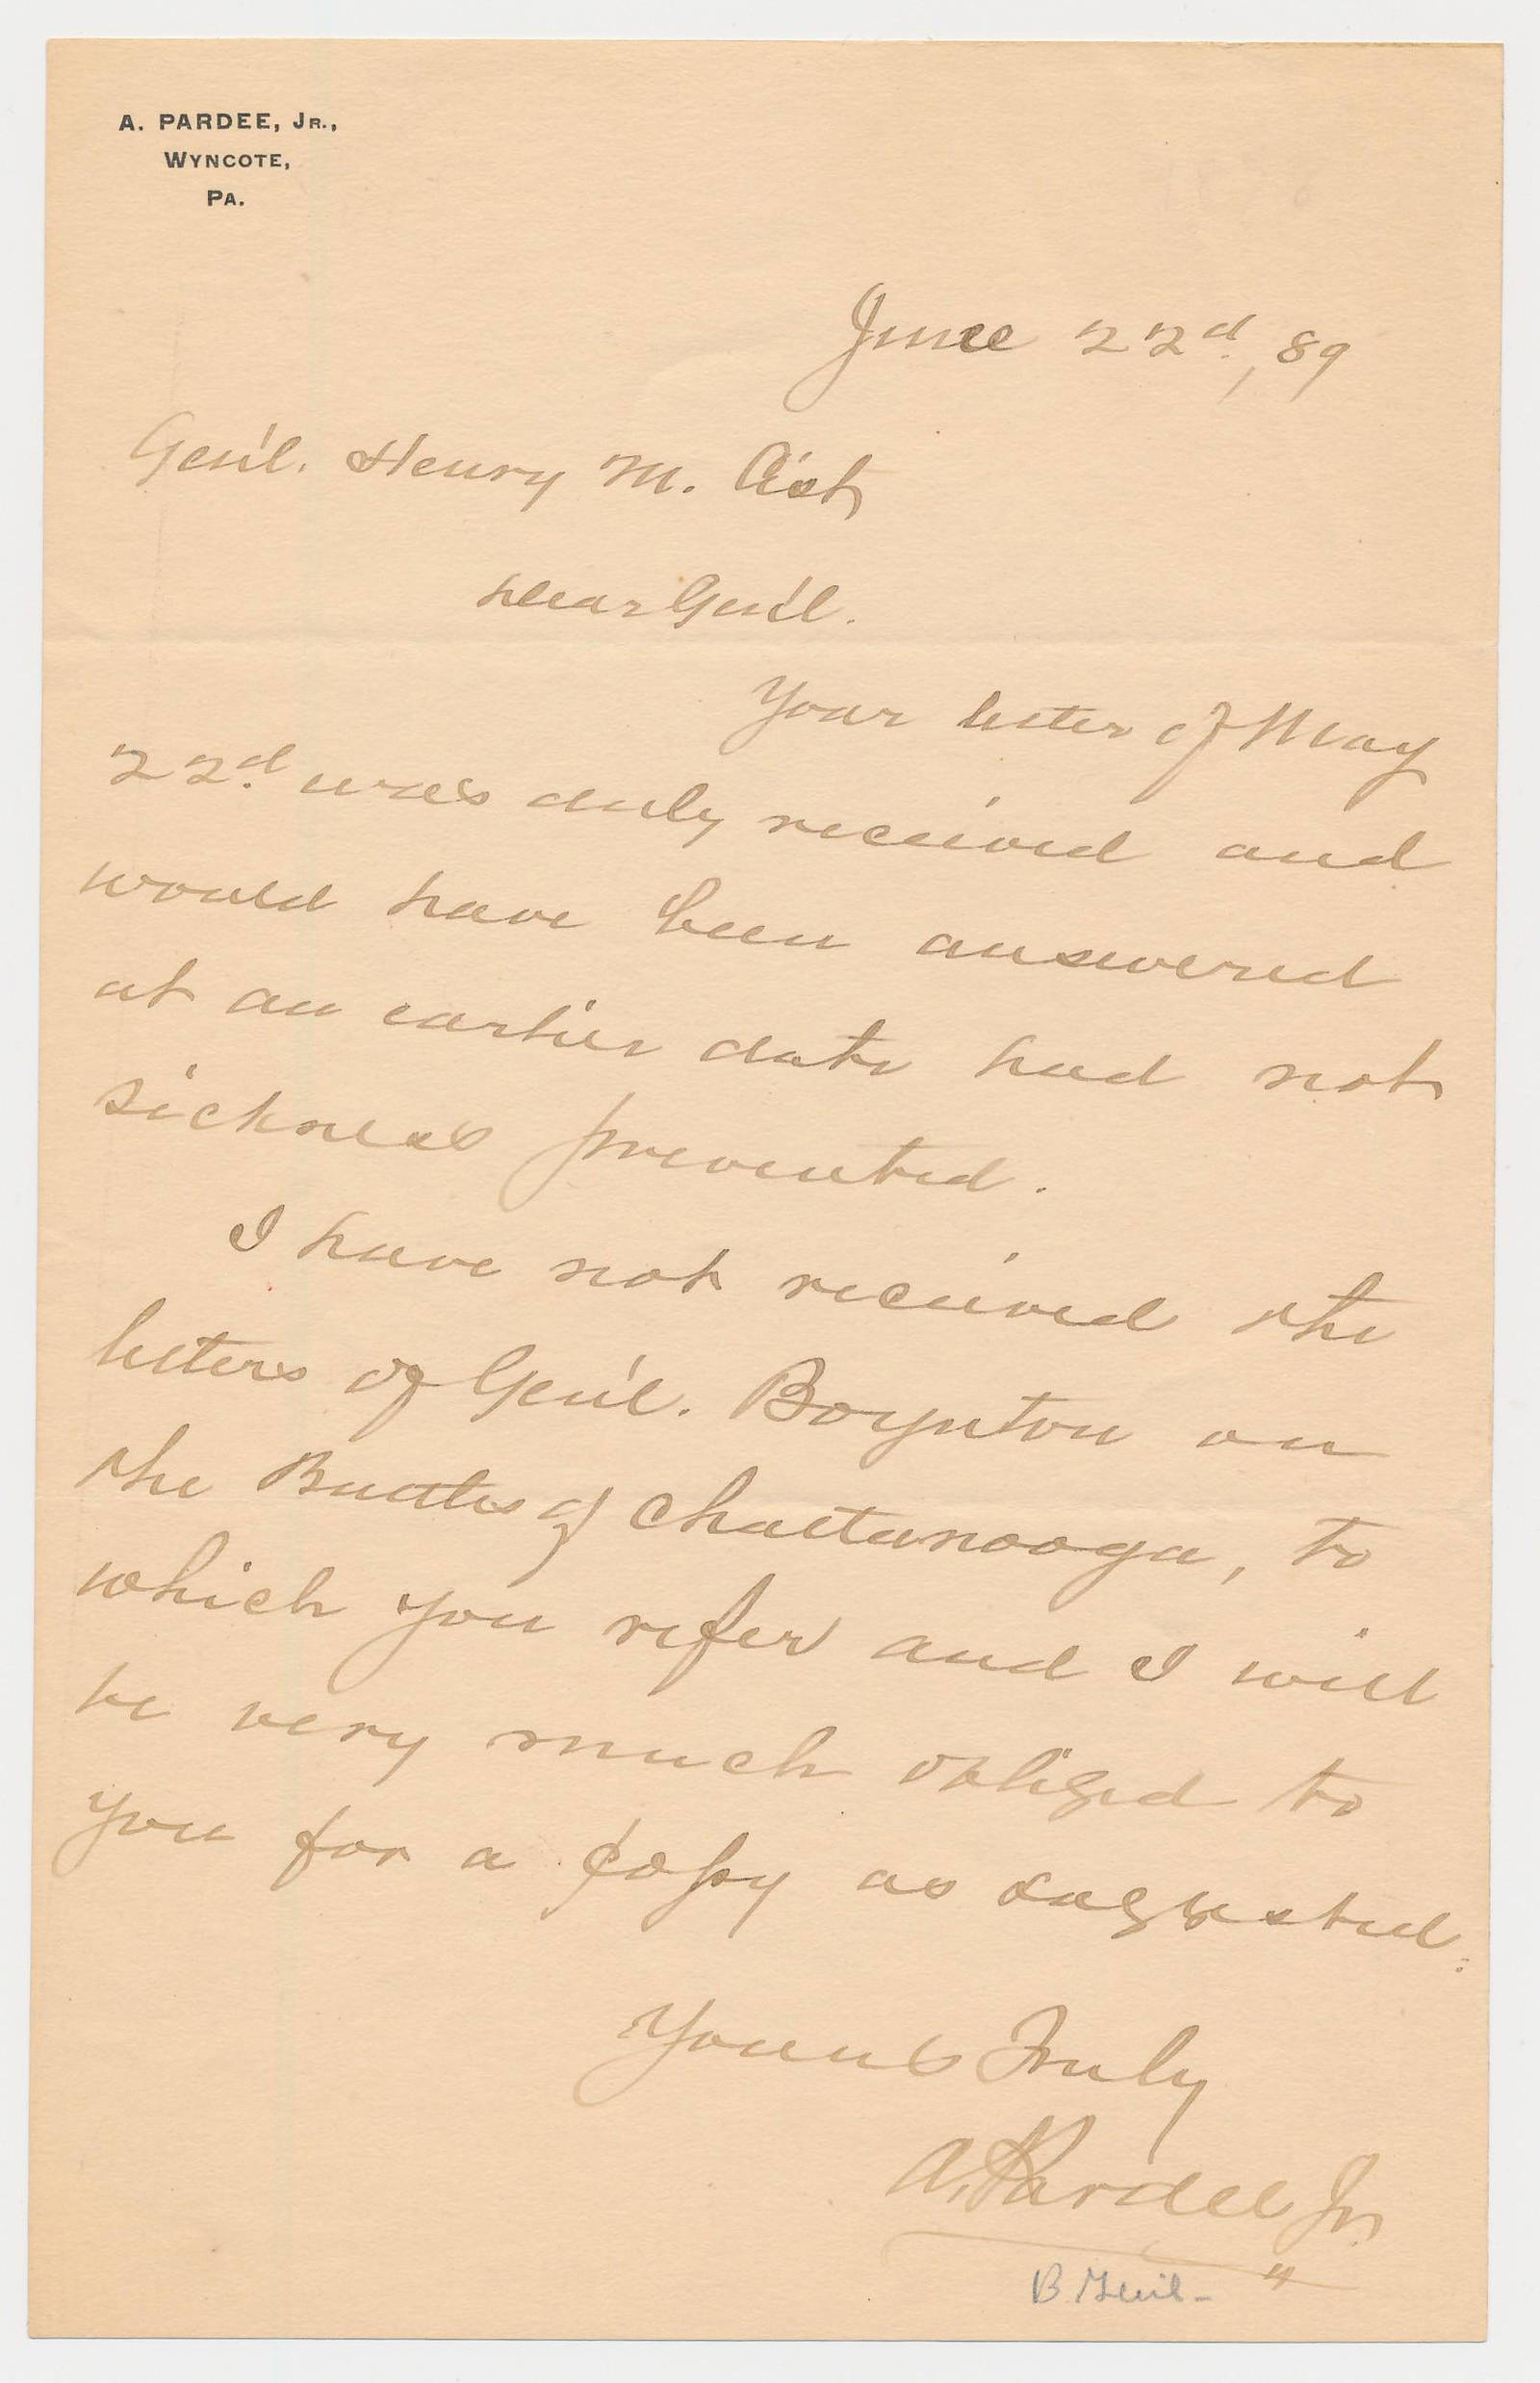 A. PARDEE, JR.,
WYNCOTE,
PA.
June 22d, 89
Gen'l. Henry M. Cist
Dear Gen'l.
Your letter of May
22d was duly received and
would have been answered
at an earlier date had not
sickness prevented.
I have not received the
letters of Gen'l. Boynton on
the Battles of Chattanooga, to
which you refer and I will
be very much obliged to
you for a copy as sugested.
Yours Truly
A. Pardee Jr.
B. Genl -